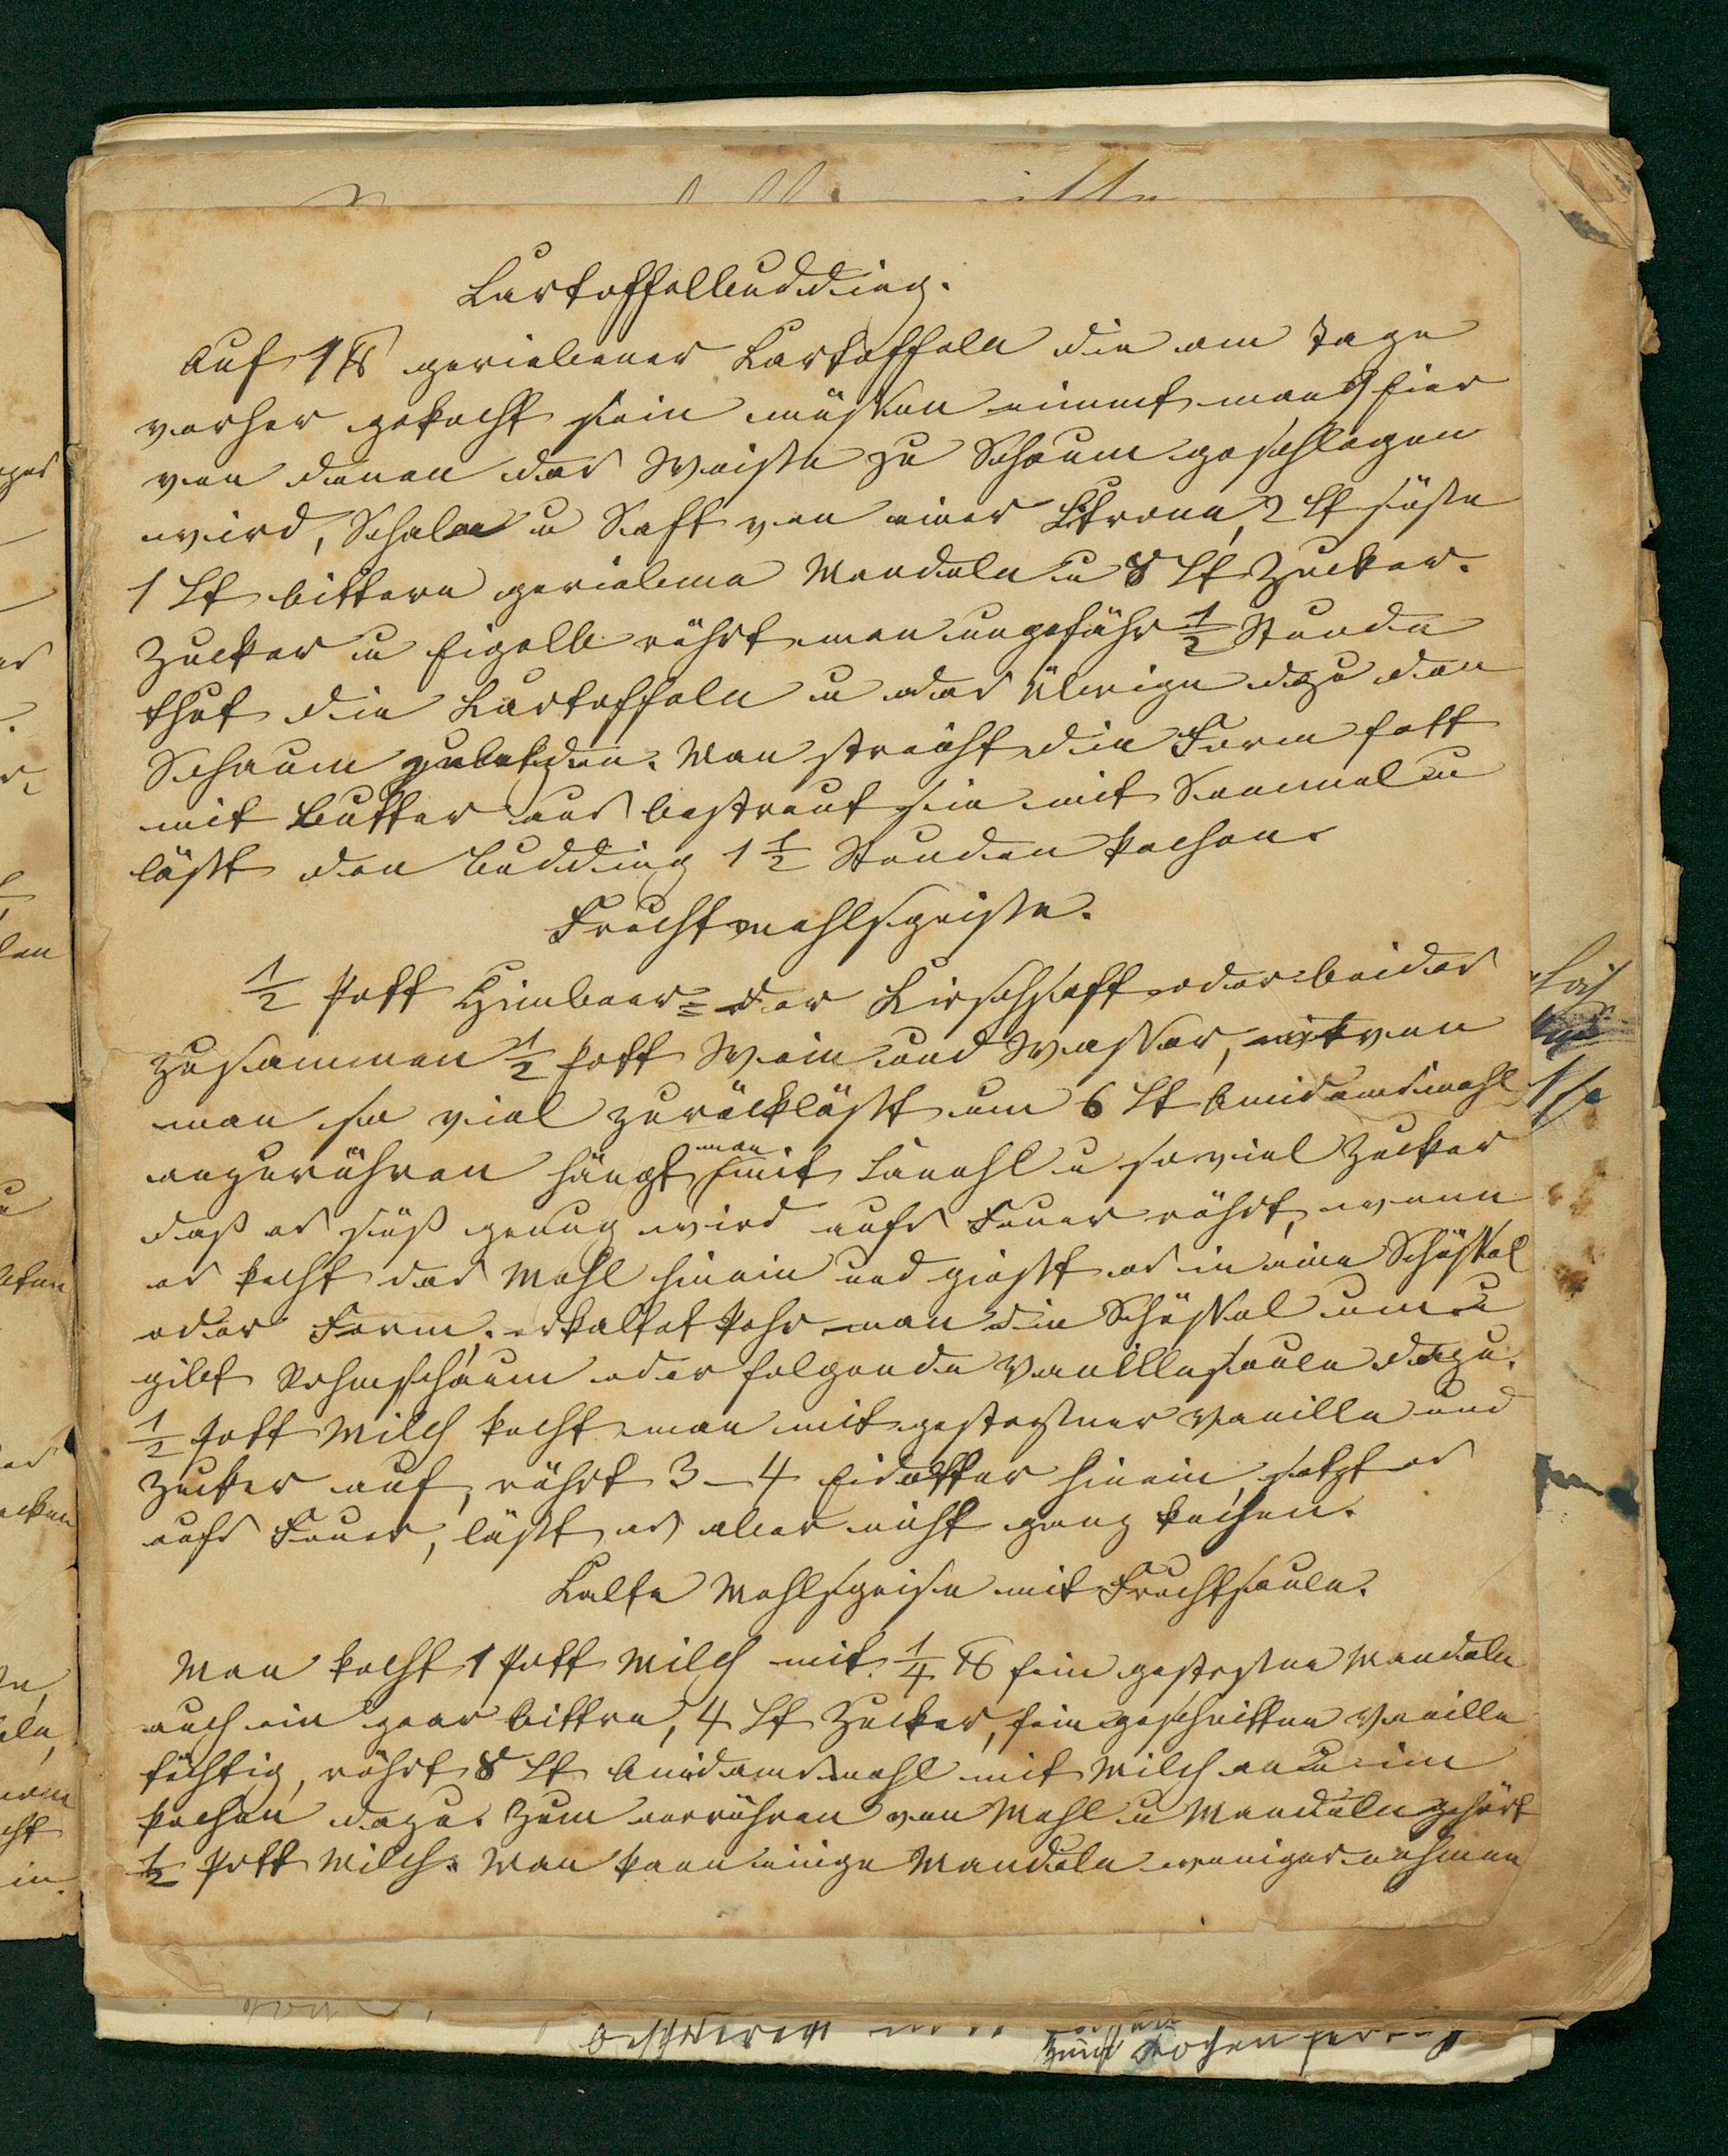 Kartoffelbudding.
Auf 1 ℔ geriebener Kartoffeln die am Tage
vorher gekocht sein müssen nimmt man 9 Eier
von denen das Weiße zu Schaum geschlagen
wird, Schale u Saft von einer Citrone, 2 Lt süße
1 Lt bittere geriebene Mandeln u 8 Lt Zucker.
Zucker u Eigelb rührt man ungefähr ½ Stunde
thut die Kartoffeln u das Übrige dazu den
Schaum zuletzt. Man streicht die Form fett
mit Butter aus bestreut sie mit Semmel u
läßt den Budding 1 ½ Stunden kochen.
Fruchtmehlspeise.
½ Pott Himbeer= oder Kirschsaft oder beides
zusammen ½ Pott Wein und Wasser, wovon
man so viel zurückläßt um 6 Lt Amidamsmehl
anzurühren hängt man mit Kanehl u so viel Zucker
daß es süß genug wird aufs Feuer rührt, wenn
es kocht das Mehl hinein und gießt es in eine Schüssel
oder Form. erkaltet kehrt man die Schüssel um u
gibt Rahmschaum oder folgende Vanillesauce dazu.
½ Pott Milch kocht man mit gestoßner Vanille und
Zucker auf, rührt 3 – 4 Eidotter hinein, setzt es
aufs Feuer, läßt es aber nicht ganz kochen.
Kalte Mehlspeise mit Fruchtsauce.
Man kocht 1 Pott Milch mit ¼ ℔ fein gestoßne Mandeln
auch ein paar bittre, 4 Lt Zucker, fein geschnitten Vanille
tüchtig, rührt 8 Lt Amidamsmehl mit Milch an u im
kochen dazu. Zum anrühren von Mehl u Mandeln gehört
½ Pott Milch. Man kann einige Mandeln weniger nehmen